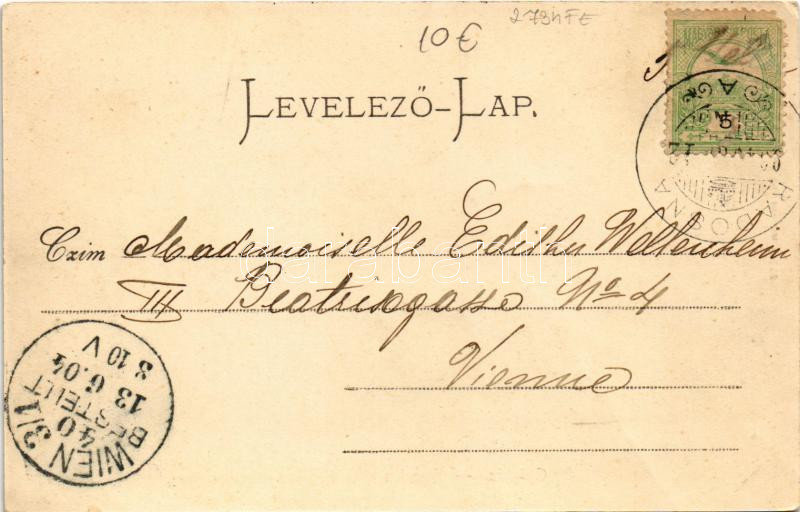 10 €
LEVELEZŐ-LAP.
5
RADOSNA
Czim Mademoiselle Edith Wellenheim
III Beatrixgasse No 4
Vienne
WIEN 3/1
40
BESTELLT
13 6.04
8 10 V
darabanth